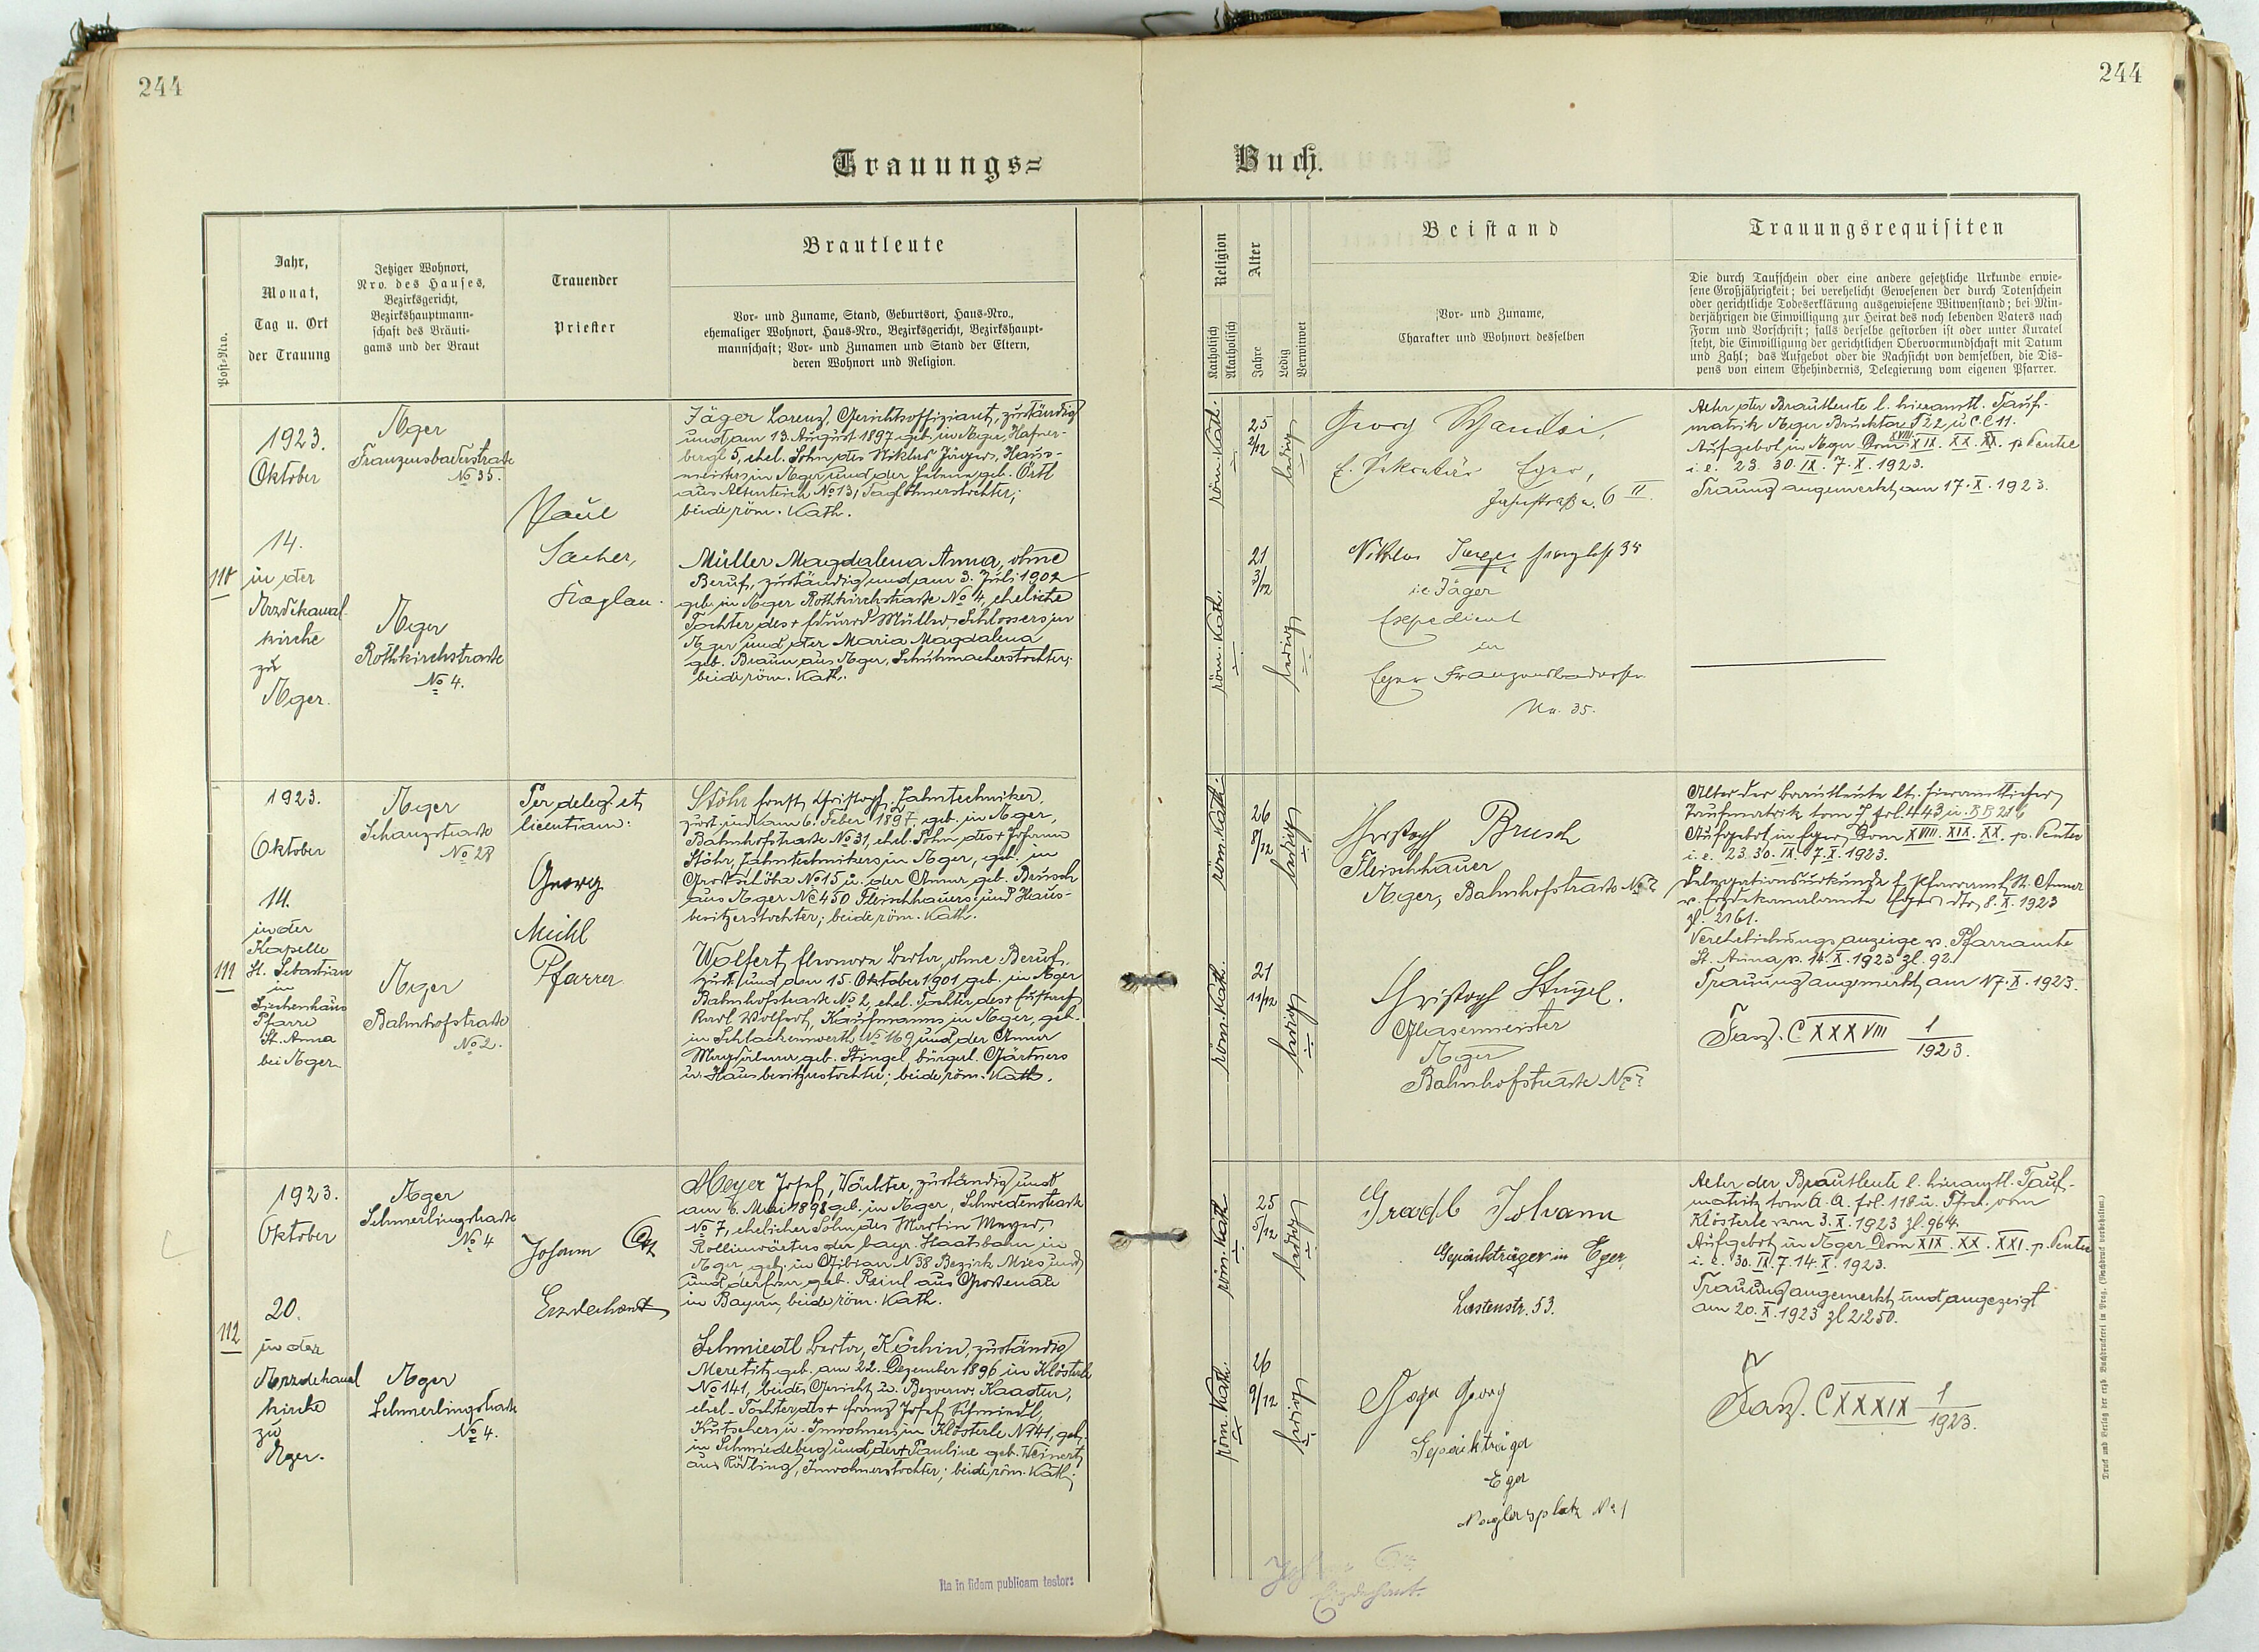 244
244
Trauungs=
Buch.
Post-Nro.
Jahr,
Monat,
Tag u. Ort
der Trauung
Jetziger Wohnort,
Nro. des Hauses,
Bezirksgericht,
Bezirkshauptmann-
schaft des Bräuti-
gams und der Braut
Trauender
Priester
Brautleute
Vor- und Zuname, Stand, Geburtsort, Haus-Nro.,
ehemaliger Wohnort, Haus-Nro., Bezirksgericht, Bezirkshaupt-
mannschaft; Vor- und Zunamen und Stand der Eltern,
deren Wohnort und Religion.
Religion
Katholisch
Akatholisch
Alter
Jahre
Ledig
Verwitwet
Beistand
Vor- und Zuname,
Charakter und Wohnort desselben
Trauungsrequisiten
Die durch Taufschein oder eine andere gesetzliche Urkunde erwie-
sene Großjährigkeit; bei verehelicht Gewesenen der durch Totenschein
oder gerichtliche Todeserklärung ausgewiesene Witwenstand; bei Min-
derjährigen die Einwilligung zur Heirat des noch lebenden Vaters nach
Form und Vorschrift; falls derselbe gestorben ist oder unter Kuratel
steht, die Einwilligung der gerichtlichen Obervormundschaft mit Datum
und Zahl; das Aufgebot oder die Nachsicht von demselben, die Dis-
pens von einem Ehehindernis, Delegierung vom eigenen Pfarrer.
110
1923.
Oktober
14.
in der
kirche
zu
Eger.
Eger
Franzensbaderstraße
No 35.
Eger
Rothkirchstraße
No 4.
Paul
Sacher,
Kaplan.
Jäger Lorenz, Gerichtsoffiziant, zuständig
und am 13. August 1897 geb. in Eger, Hafner-
bergl 5, ehel. Sohn des Niklas Jäger, Haus-
meisters in Eger und der Helene geb. Örtl
aus Altenteich No 13, Taglöhnerstochter;
beide röm. Kath.
Müller Magdalena Anna, ohne
Beruf, zuständig und am 3. Juli 1902
geb. in Eger Rothkirchstraße No 4, eheliche
Tochter des + Eduard Müller, Schlossers in
Eger und der Maria Magdalena
geb. Braun aus Eger, Schuhmacherstochter;
beide röm. Kath.
röm. Kath.
25
2/12
ledig
röm. Kath.
21
3/12
ledig
Georg
Eger,
6 II.
Niklas
i.e. Jäger
Expedient
in
Eger Franzensbaderstr
No. 35.
Alter der Brautleute l. hieramtl. Tauf-
matrik Eger
Aufgebot in Eger Dom XVIII XIX. XX. p. Pente
i.e. 23. 30. IX. 7. X. 1923.
Trauung angemerkt am 17. X. 1923.
111
1923.
Oktober
14.
in der
Kapelle
St. Sebastian
in
Siechenhaus
Pfarre
St. Anna
bei Eger.
Eger
Schanzstraße
No 28
Eger
Bahnhofstraße
No 2.
Per deleg. et
licentiam:
Georg
Michl
Pfarrer
Stöhr Ernst Christoph, Zahntechniker,
zust. und am 6. Feber 1897 geb. in Eger,
Bahnhofstraße No 31, ehel. Sohn des + Johann
Stöhr, Zahntechnikers in Eger, geb. in
No 15 u. der Anna geb. Brusch
aus Eger No 450 Fleischhauers- und Haus-
besitzerstochter; beide röm. Kath.
Wolfert Eleonora Berta, ohne Beruf,
zust. und am 15. Oktober 1901 geb. in Eger
Bahnhofstraße No 2, ehel. Tochter des + Gustav
Karl Wolfert, Kaufmanns in Eger, geb.
in Schlackenwerth No 169 und der Anna
Magdalena geb. Stingel, bürgl. Gärtners
u. Hausbesitzerstochter; beide röm. Kath.
röm. Kath.
26
8/12
ledig
röm. Kath.
21
11/12
ledig
Christoph Brusch
Fleischhauer
Eger, Bahnhofstraße No 2
Christoph Stingel.
Glasermeister
Eger
Bahnhofstraße No 2
Alter der Brautleute lt. hieramtlicher
Taufmatrik tom J fol. 443 u. BB 216
Aufgebot in Eger Dom XVIII. XIX. XX. p. Pente
i.e. 23. 30. IX. 7. X. 1923.
Delegationsurkunde f. Pfarramt St. Anna
v. Erzdekanalamte Eger dto 8. X. 1923
Zl. 2161.
Verehelichungsanzeige v. Pfarramte
St. Anna v. 14. X. 1923 Zl. 92.
Trauung angemerkt am 17. X. 1923.
Fasz. CXXXVIII 1/1923.
112
1923.
Oktober
20.
in der
kirche
zu
Eger.
Eger
Schmerlingstraße
No 4
Eger
Schmerlingstraße
No 4.
Johann Ott
Erzdechant
Meyer Josef, Wächter, zuständig und
am 6. Mai 1898 geb. in Eger, Schwedenstraße
No 7, ehelicher Sohn des Martin Meyer,
der bayr. Staatsbahn in
Eger, geb. in No 38 Bezirk Mies und
in Bayern, beide röm. Kath.
Schmiedl Berta, Köchin, zuständig
Meretitz geb. am 22. Dezember 1896 in Klösterle
No 141, beides Gericht u. Bezverw. Kaaden,
ehel. Tochter des + Franz Josef Schmiedl,
Kutschers u. Inwohners in Klösterle No 141, geb.
in Schmiedeberg und der + Pauline geb. Weinert
aus Rödling, Inwohnerstochter; beide röm. Kath.
röm. Kath.
25
5/12
ledig
röm. Kath.
26
9/12
ledig
Gradl Johann
Gepäckträger in Eger,
Lastenstr. 53.
Georg
Gepäckträger
Eger
No 1
Alter der Brautleute l. hieramtl. Tauf-
matrik tom A.A. fol. 118 u. Pfrd. von
Klösterle vom 3. X. 1923 Zl. 964.
Aufgebot in Eger Dom XIX. XX. XXI. p. Pente
i.e. 30. IX. 7. 14. X. 1923.
Trauung angemerkt und angezeigt
am 20. X. 1923 Zl 2250.
Fasz. CXXXIX 1/1923.
Ita in fidem publicam testor:
Johann Ott,
Erzdechant.
Druck und Verlag der erzb. Buchdruckerei in Prag. (Nachdruck vorbehalten.)